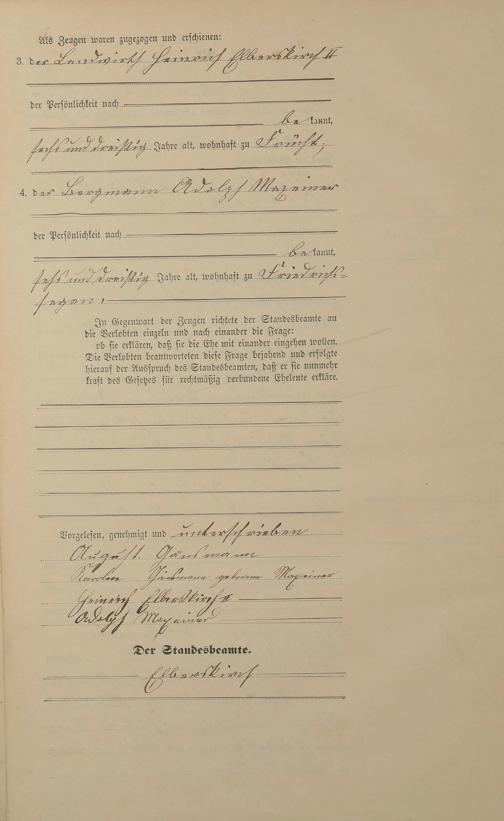 Als Zeugen waren zugezogen und erschienen:
3. der Landwirth Heinrich Elberskirch II
der Persönlichkeit nach
be kannt,
sechs und dreißig Jahre alt, wohnhaft zu Frücht,
4. der Bergmann Adolf Maxeiner
der Persönlichkeit nach
be kannt,
sechs und dreißig Jahre alt, wohnhaft zu Friedrichs-
segen,
In Gegenwart der Zeugen richtete der Standesbeamte an
die Verlobten einzeln und nach einander die Frage:
ob sie erklären, daß sie die Ehe mit einander eingehen wollen.
Die Verlobten beantworteten diese Frage bejahend und erfolgte
hierauf der Ausspruch des Standesbeamten, daß er sie nunmehr
kraft des Gesetzes für rechtmäßig verbundene Eheleute erkläre.
Vorgelesen, genehmigt und unterschrieben
August Gänsmann
Gänsmann geborene Maxeiner
Heinrich Elberskirch II
Adolf Maxeiner
Der Standesbeamte.
Elberskirch